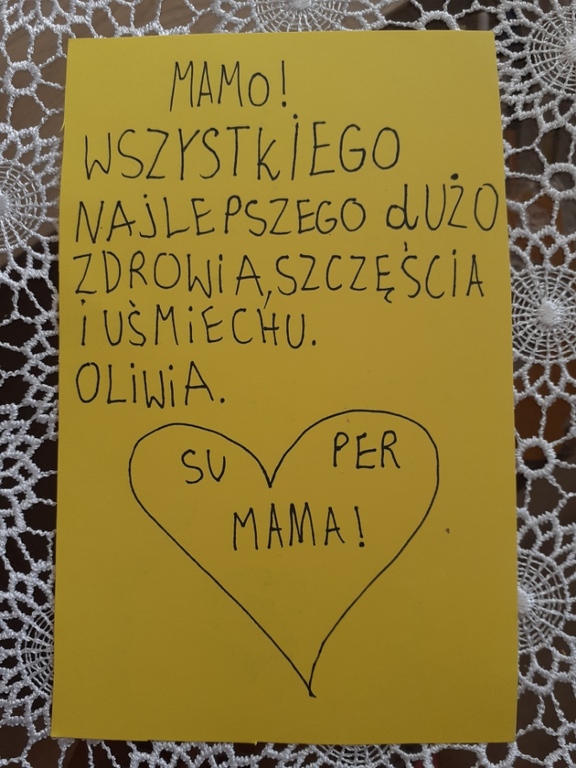 MAMO!
WSZYSTKIEGO
NAJLEPSZEGO dUŻO
ZDROWiA, SZCZĘŚCiA
i UŚMiECHU.
OLiWiA.
SU PER
MAMA!